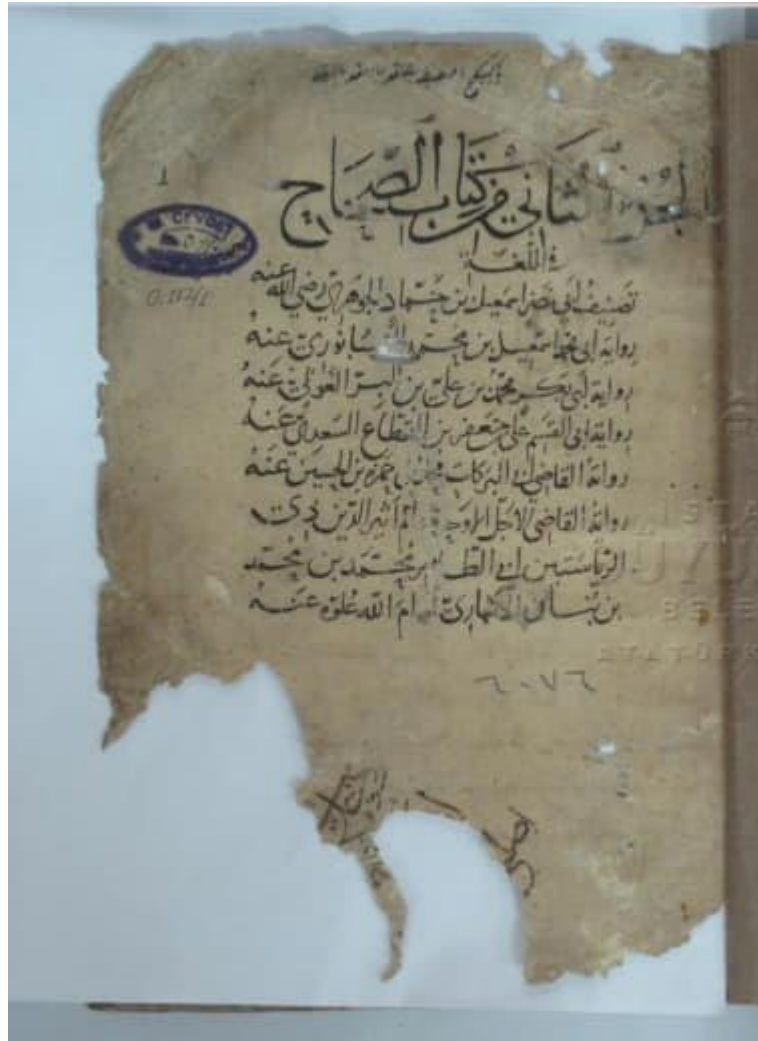 الجزء الثاني من كتاب الصحاح
في اللغة
1
M. CEVDET
O.117/1
تصنيف ابي نصر اسمعيل بن حماد الجوهري رضي الله عنه
رواية ابي محمد اسمعيل بن محمد النيسابوري عنه
رواية ابي بكر محمد بن علي بن البر الغوثي عنه
رواية ابي القسم علي بن جعفر بن القطاع السعدي عنه
رواية القاضي ابي البركات محمد بن حمزة بن الحسين عنه
رواية القاضي الاجل اثير الدين ذي
الرياستين ابي الطاهر محمد بن محمد
بن بنان الانباري ادام الله علوه عنه
٦٠٧٦
ISTA
BELE
ATATÜRK